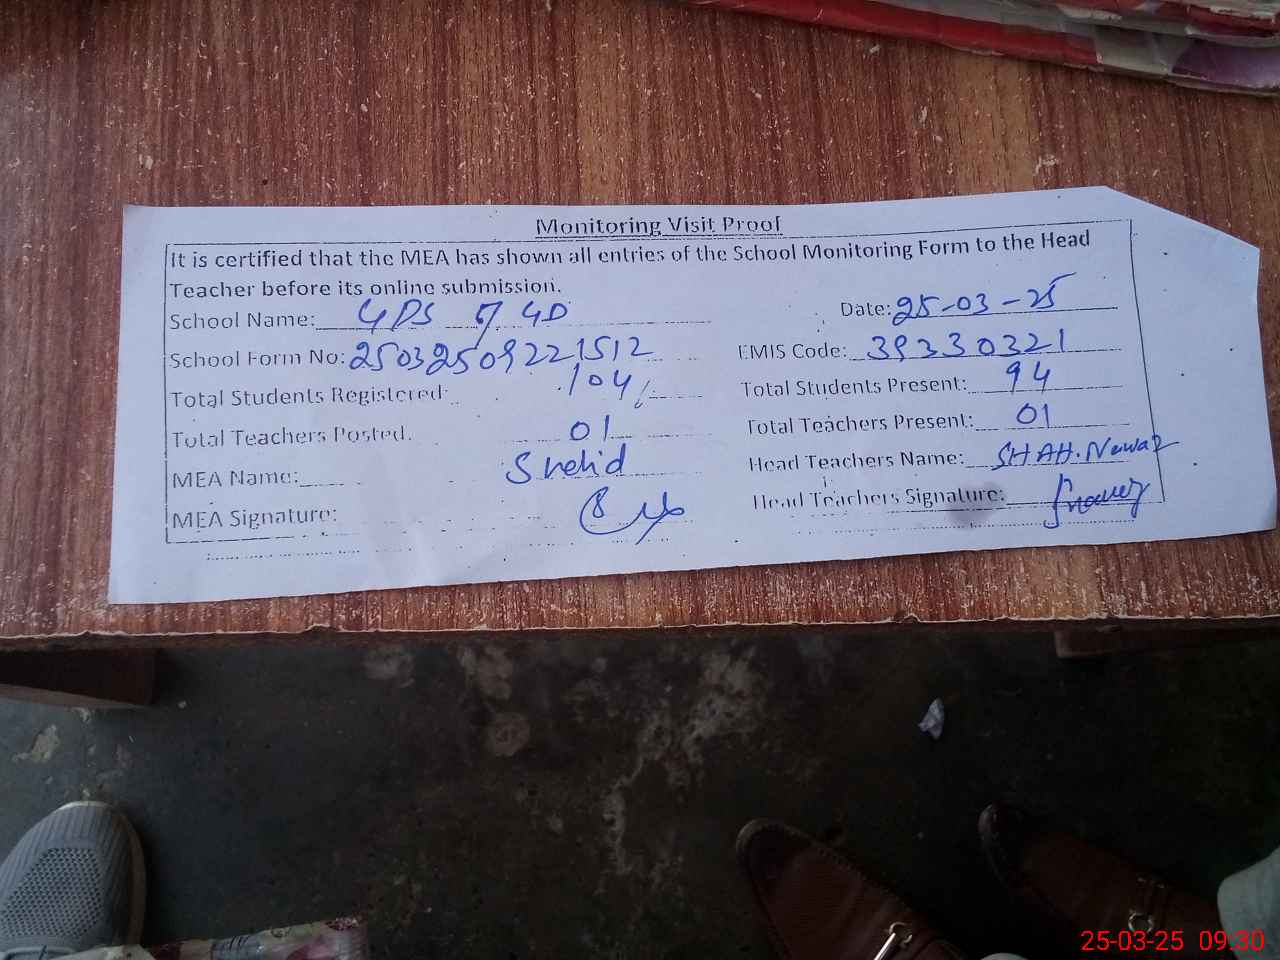 Monitoring Visit Proof
It is certified that the MEA has shown all entries of the School Monitoring Form to the Head
Teacher before its online submission.
School Name: GPS 7 4D Date: 25-03-25
School Form No: 25032509221512 EMIS Code: 39330321
Total Students Registered: 104/- Total Students Present: 94
Total Teachers Posted: 01 Total Teachers Present: 01
MEA Name: Shahid Head Teachers Name: SHAH.Nawaz
MEA Signature: Head Teachers Signature:
25-03-25 09:30